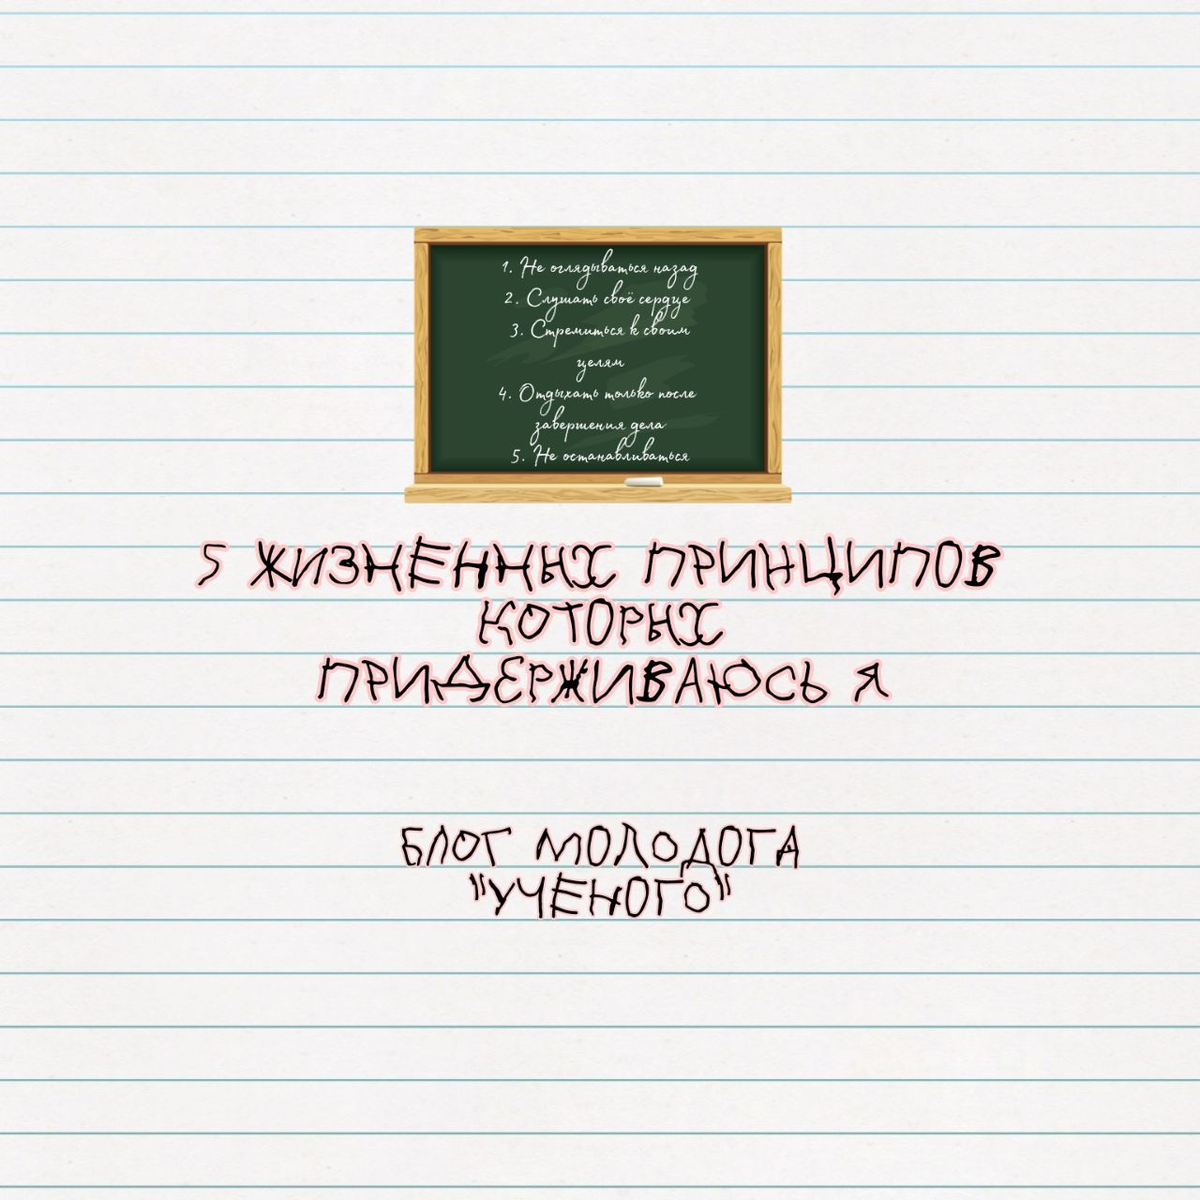 1. Не оглядываться назад
2. Слушать своё сердце
3. Стремиться к своим
целям
4. Отдыхать только после
завершения дела
5. Не останавливаться
5 ЖИЗНЕННЫХ ПРИНЦИПОВ
КОТОРЫХ
ПРИДЕРЖИВАЮСЬ Я
БЛОГ МОЛОДОГА
"УЧЕНОГО"